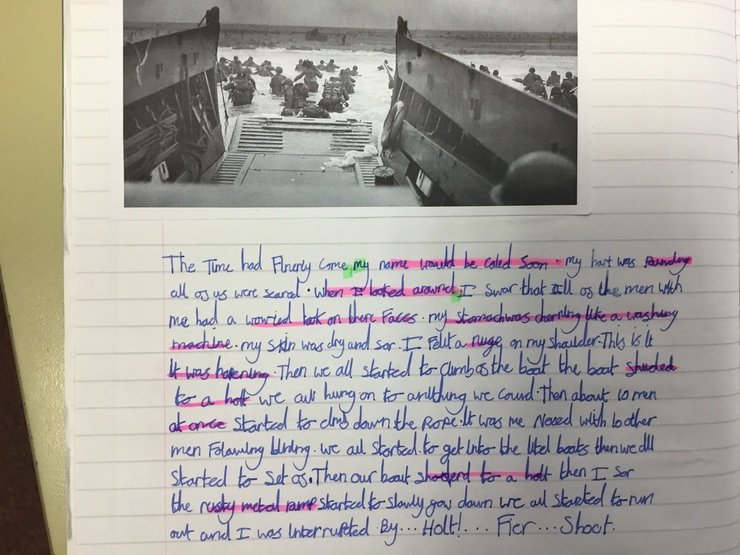 The Time had Finerly Come my name would be caled Soon. my hart was Pounding
all of us were scared. When I looked around, I swor that all of the men with
me had a worried look on there Faces. my Stomach was cherning like a washing
machine. my Skin was dry and sor. I Felt a nuge on my Shoulder. This is it
it was hapening. Then we all started to climb of the boat the boat shuded
to a holt we all hung on to anything we cound. Then about 10 men
at once started to climb down the Rope. It was me Nexed with 10 other
men Folawing blinding. we all Started to get into the litel boats then we all
Started to Set of. Then our boat to a holt then I Sor
the rusty metal ramp Started to slowly gow down we all started to run
out and I was interrupted By... Holt!... Fier... Shoot.